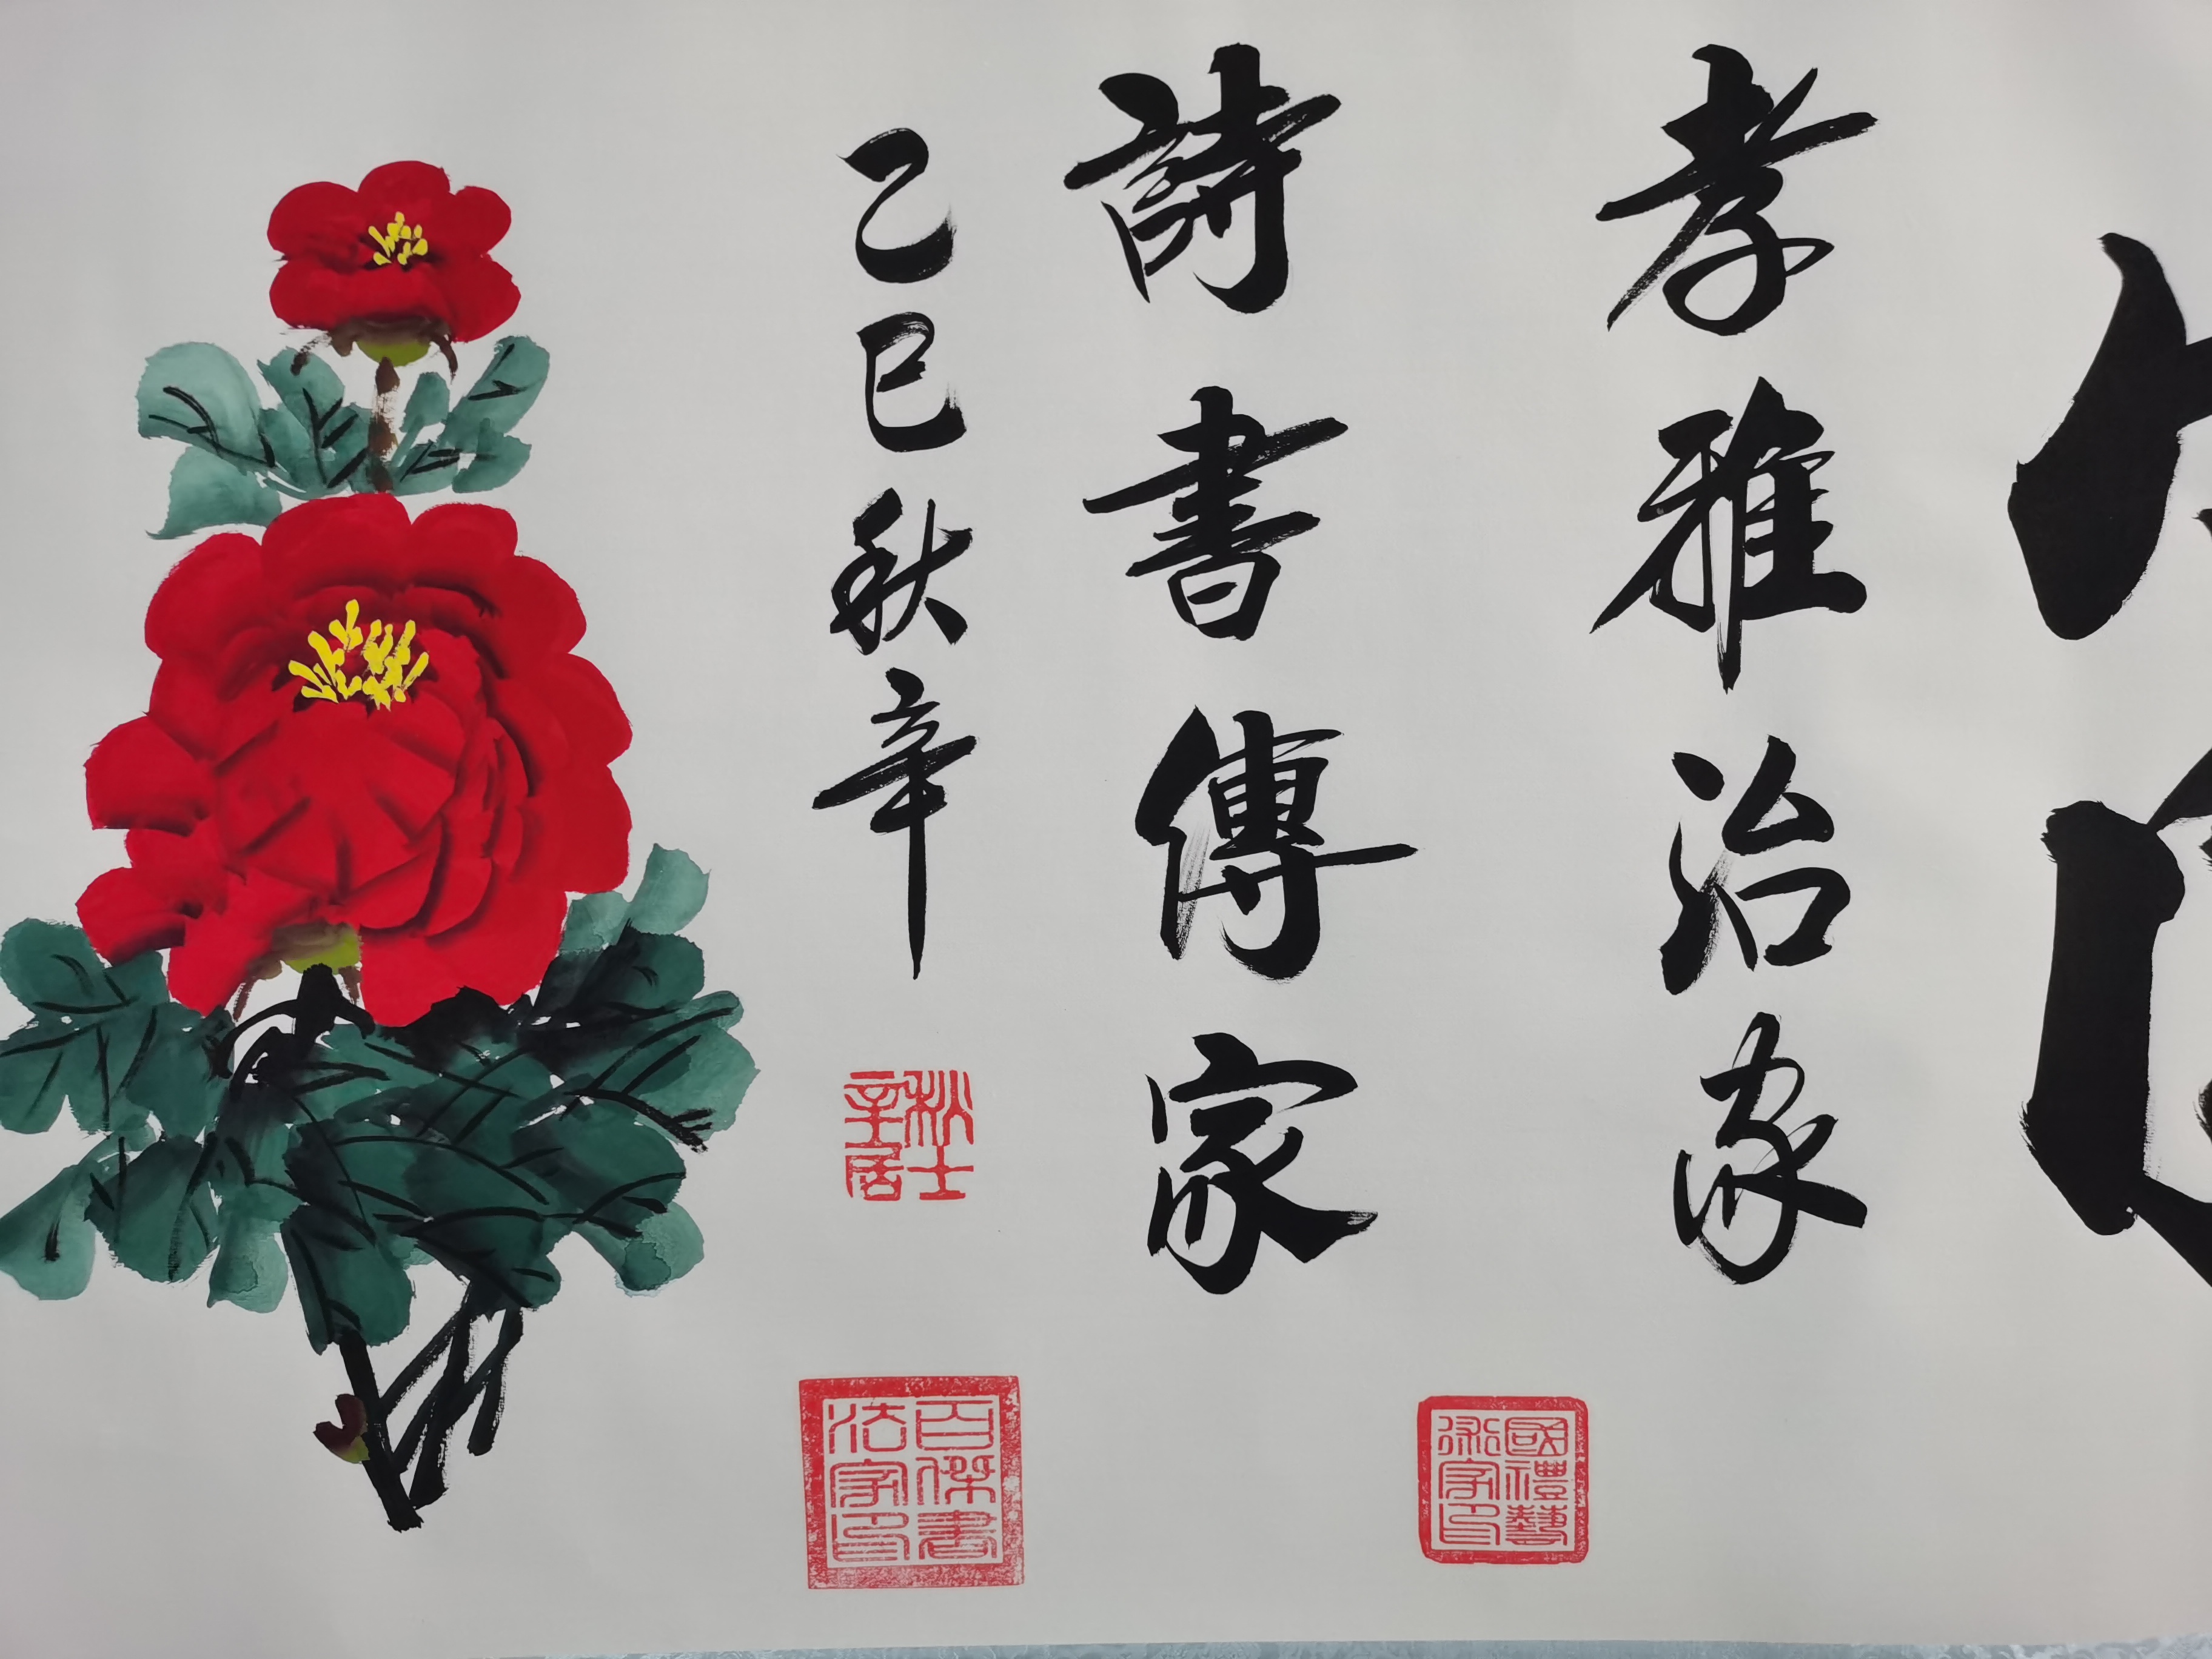 孝雅治家
詩書傳家
乙巳秋辛
秋士辛居
國禮藝術家印
百傑書法家印